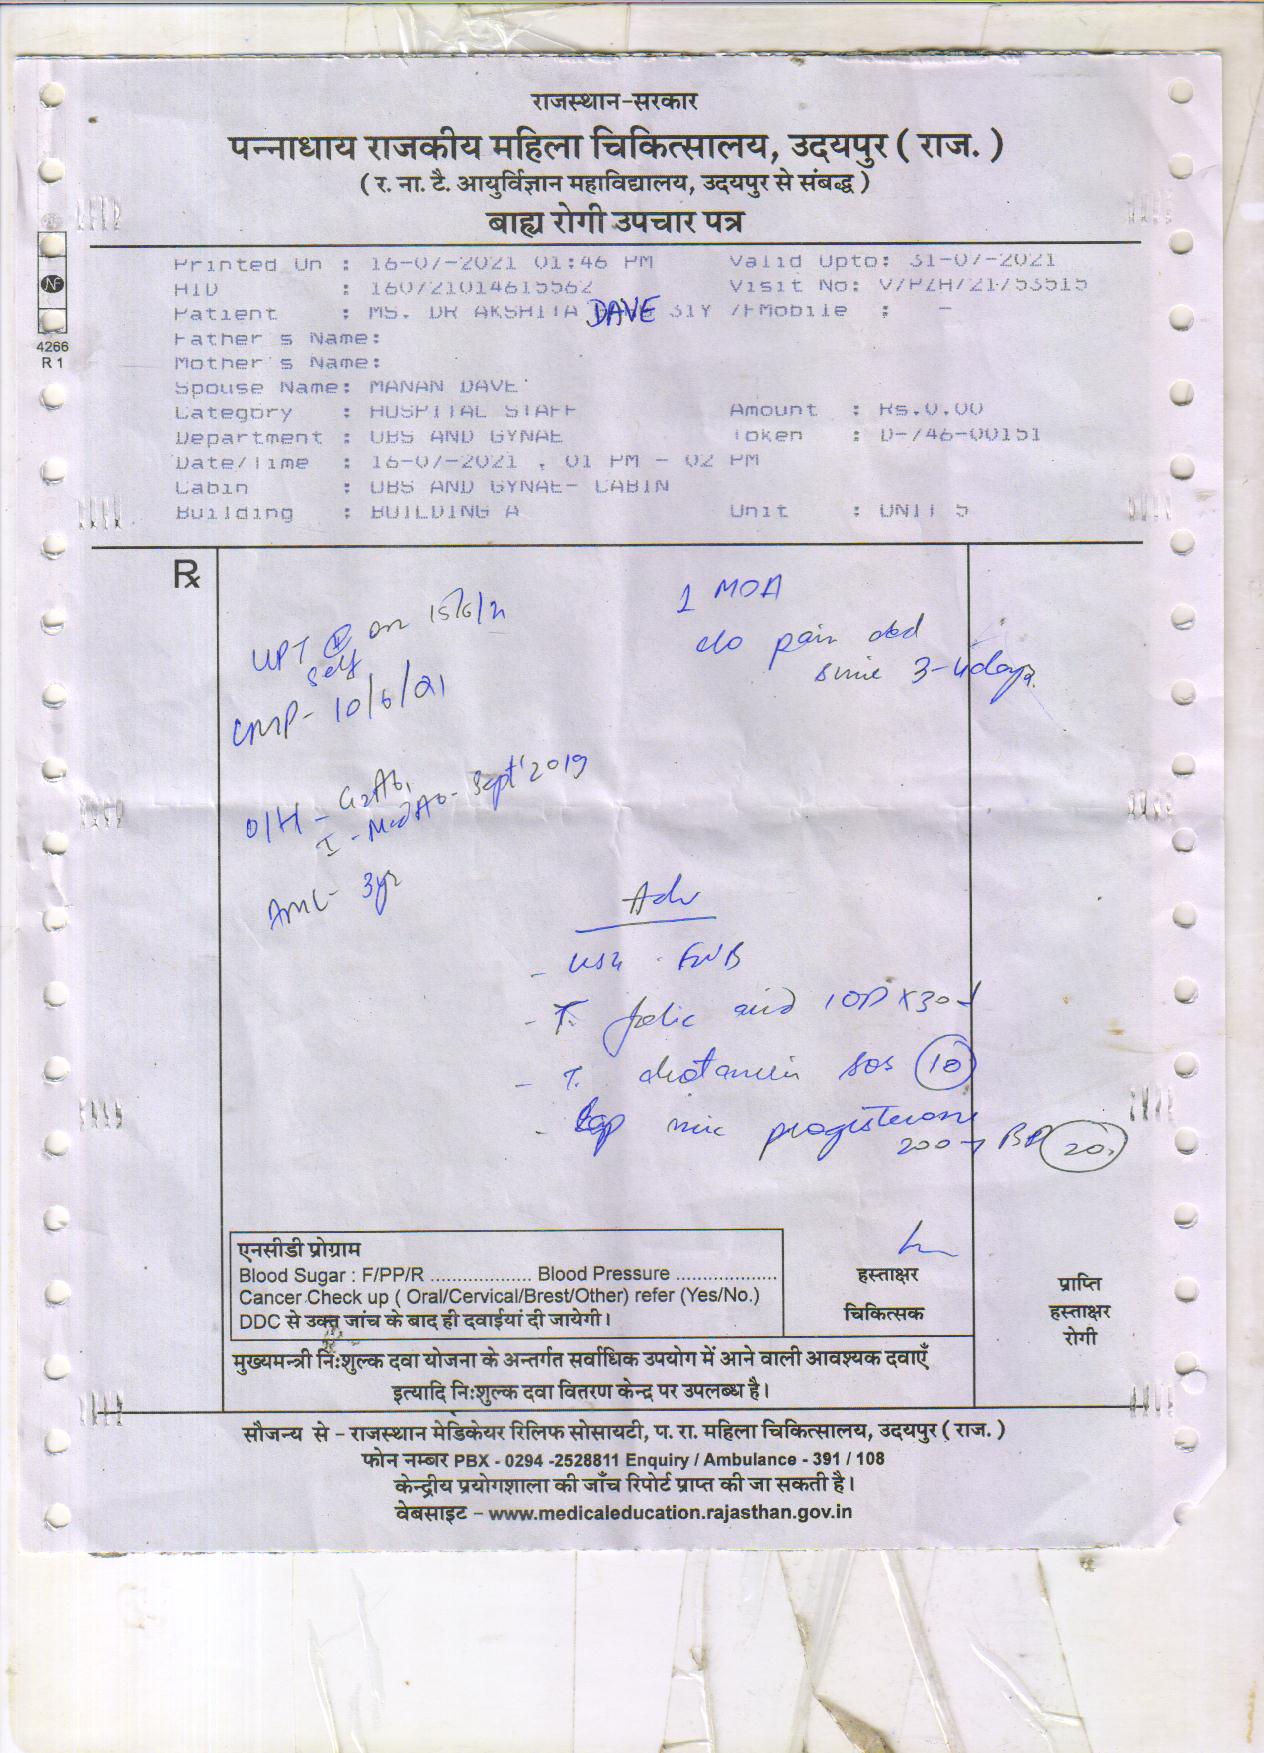 राजस्थान-सरकार
पन्नाधाय राजकीय महिला चिकित्सालय, उदयपुर ( राज. )
( र. ना. टै. आयुर्विज्ञान महाविद्यालय, उदयपुर से संबद्ध )
बाह्य रोगी उपचार पत्र
Printed On : 16-07-2021 01:46 PM Valid Upto: 31-07-2021
HID : 160721014615562 Visit No: V/PZH/21/53515
Patient : MS. DR AKSHITA DAVE 31Y /FMobile : -
Father's Name:
Mother's Name:
Spouse Name: MANAN DAVE
Category : HOSPITAL STAFF Amount : Rs.0.00
Department : OBS AND GYNAE Token : D-746-00151
Date/Time : 16-07-2021 , 01 PM - 02 PM
Cabin : OBS AND GYNAE- CABIN
Building : BUILDING A Unit : UNIT 5
NF
4266
R 1
Rx
1 MOA
c/o pain abd
since 3-4 days
UPT on 15/6/21
self
LMP- 10/6/21
O/H - G2Ab1
I - Med Ab - Sept'2019
AML- 3yr
Adv
- USG FWB
- T. folic acid 1OD X 30
- T. drotaverin SOS 10
- Cap mic progesterone
200 BD 20
एनसीडी प्रोग्राम
Blood Sugar : F/PP/R ................... Blood Pressure ...................
Cancer Check up ( Oral/Cervical/Brest/Other) refer (Yes/No.)
DDC से उक्त जांच के बाद ही दवाईयां दी जायेगी।
हस्ताक्षर
चिकित्सक
प्राप्ति
हस्ताक्षर
रोगी
मुख्यमन्त्री निःशुल्क दवा योजना के अन्तर्गत सर्वाधिक उपयोग में आने वाली आवश्यक दवाएँ
इत्यादि निःशुल्क दवा वितरण केन्द्र पर उपलब्ध है।
सौजन्य से - राजस्थान मेडिकेयर रिलिफ सोसायटी, प. रा. महिला चिकित्सालय, उदयपुर ( राज. )
फोन नम्बर PBX - 0294 -2528811 Enquiry / Ambulance - 391 / 108
केन्द्रीय प्रयोगशाला की जाँच रिपोर्ट प्राप्त की जा सकती है।
वेबसाइट - www.medicaleducation.rajasthan.gov.in